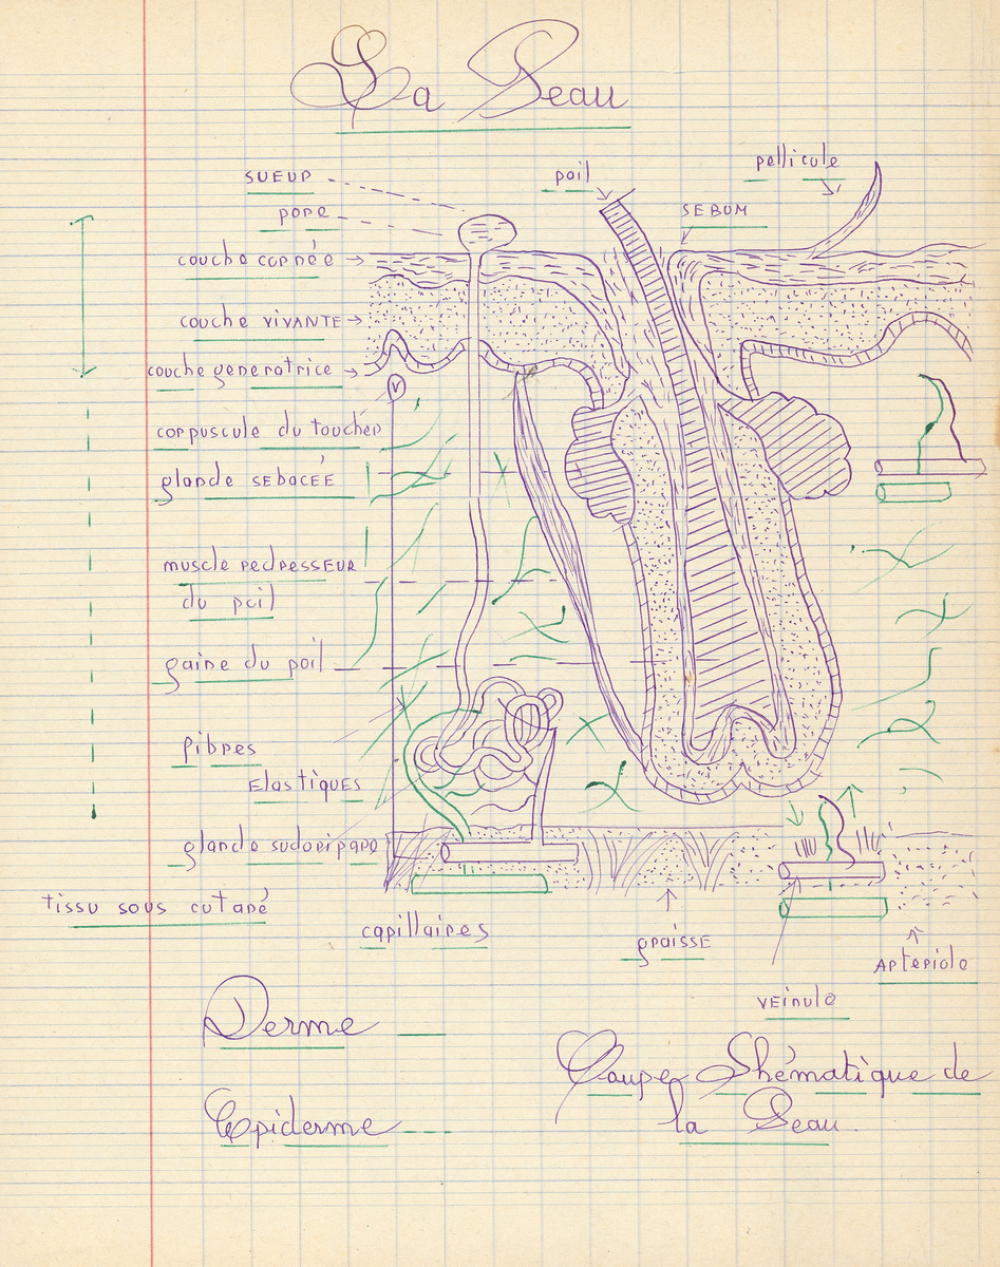 La Peau
SUEUR
pore
poil
pellicule
SEBUM
couche cornée
couche VIVANTE
couche generatrice
V
corpuscule du toucher
glande SEBACÉE
muscle REDRESSEUR
du poil
gaine du poil
fibres
Elastiques
glande sudoripare
tissu sous cutané
capillaires
graisse
Arteriole
veinule
Derme
Epiderme
Coupe Shématique de
la Peau.